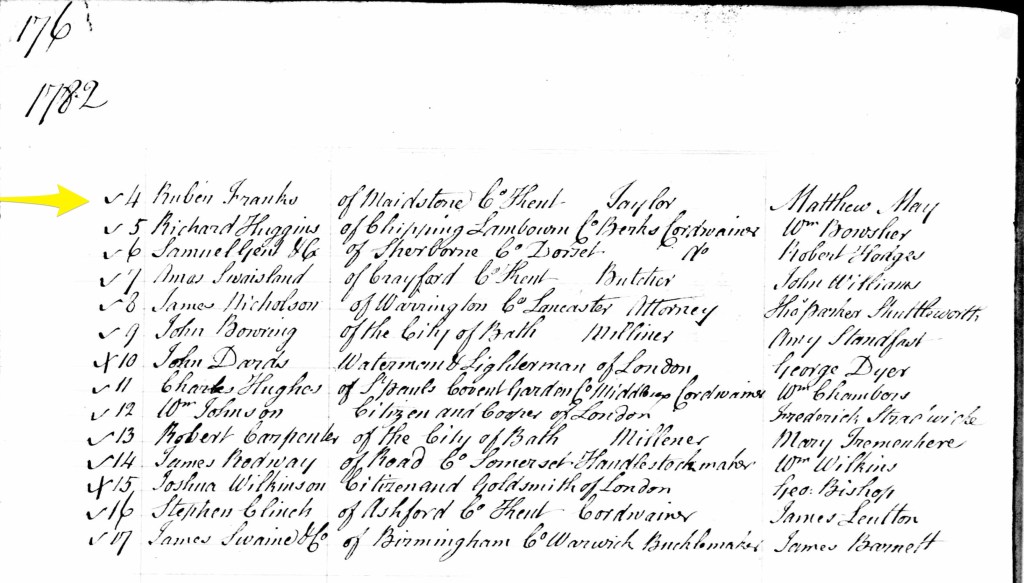 176
1782
4 Ruben Franks of Maidstone Co Kent Taylor Matthew May
5 Richard Huggins of Chipping Lambourn Co Berks Cordwainer Wm Bowsher
6 Samuel Gent & Co of Sherborne Co Dorset Do Robert Hodges
7 Amos Swaisland of Crayford Co Kent Butcher John Williams
8 James Nicholson of Warrington Co Lancaster Attorney Thos Parker Shuttleworth
9 John Bowring of the City of Bath Milliner Amy Standfast
10 John Dards Waterman & Lighterman of London George Dyer
11 Charles Hughes of St Pauls Covent Garden Co Middsex Cordwainer Wm Chambers
12 Wm Johnson Citizen and Cooper of London Frederick
13 Robert Carpenter of the City of Bath Millener Mary Tremenhere
14 James Rodway of Road Co Somerset Wm Wilkins
15 Joshua Wilkinson Citizen and Goldsmith of London Geo: Bishop
16 Stephen Clinch of Ashford Co Kent Cordwainer James
17 James Swaine & Co of Birmingham Co Warwick Bucklemaker James Barnett